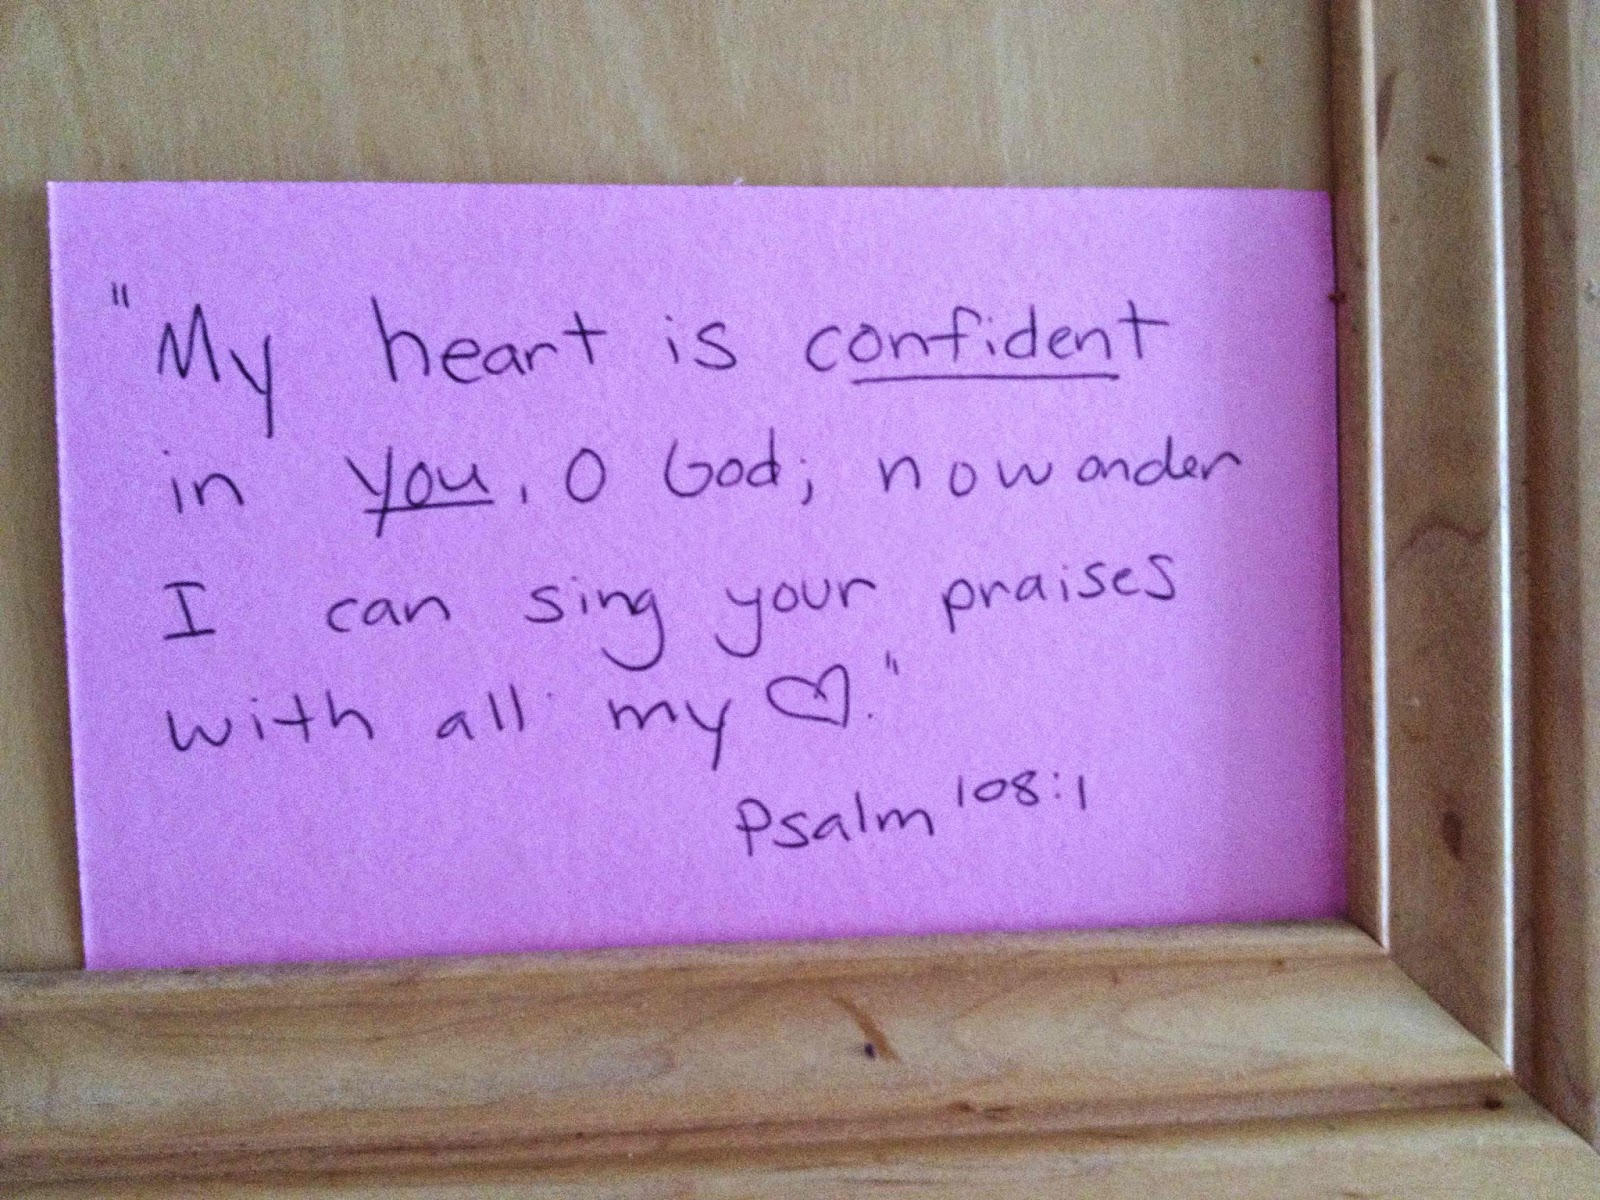 "My heart is confident
in you, O God; no wonder
I can sing your praises
with all my ♡."
Psalm 108:1